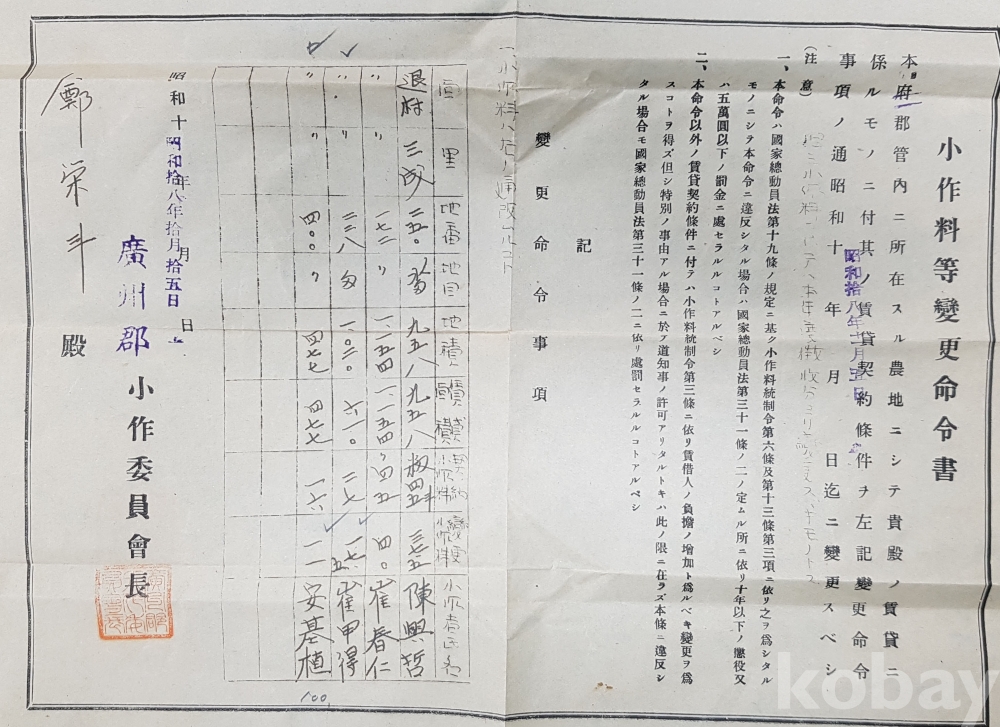 小作料等變更命令書
本府郡管內ニ所在スル農地ニシテ貴殿ノ賃貸ニ
係ルモノニ付其ノ賃貸契約條件ヲ左記變更命令
事項ノ通昭和十 年 月 日迄ニ變更スベシ
(注意)
一、本命令ハ國家總動員法第十九條ノ規定ニ基ク小作料統制令第六條及第十三條第三項ニ依リ之ヲ爲シタル
モノニシテ本命令ニ違反シタル場合ハ國家總動員法第三十一條ノ二ノ定ムル所ニ依リ十年以下ノ懲役又
ハ五萬圓以下ノ罰金ニ處セラルルコトアルベシ
二、本命令以外ノ賃貸契約條件ニ付テハ小作料統制令第三條ニ依リ賃借人ノ負擔ノ增加ト爲ルベキ變更ヲ爲
スコトヲ得ズ但シ特別ノ事由アル場合ニ於テ道知事ノ許可アリタルトキハ此ノ限ニ在ラズ本條ニ違反シ
タル場合モ國家總動員法第三十一條ノ二ニ依リ處罰セラルルコトアルベシ
記
變更命令事項
面 里 地番 地目 地積 賃貸積 契約小作料 變更小作料 小作者氏名
退村 三成 二五〇 畓 九五八 九五八 租四五斗 三七五 陳興哲
〃 〃 一七二 〃 一、一五四 一、一五四 〃四五 四〇 崔春仁
〃 〃 三三八 一、〇二〇 六一〇 二七 崔甲得
〃 〃 四〇〇 〃 四七七 四七七 一六 一一 安基植
100
昭和十 年 月 日
昭和拾八年拾月拾五日
廣州郡小作委員會長
鄭栄斗 殿
kobay